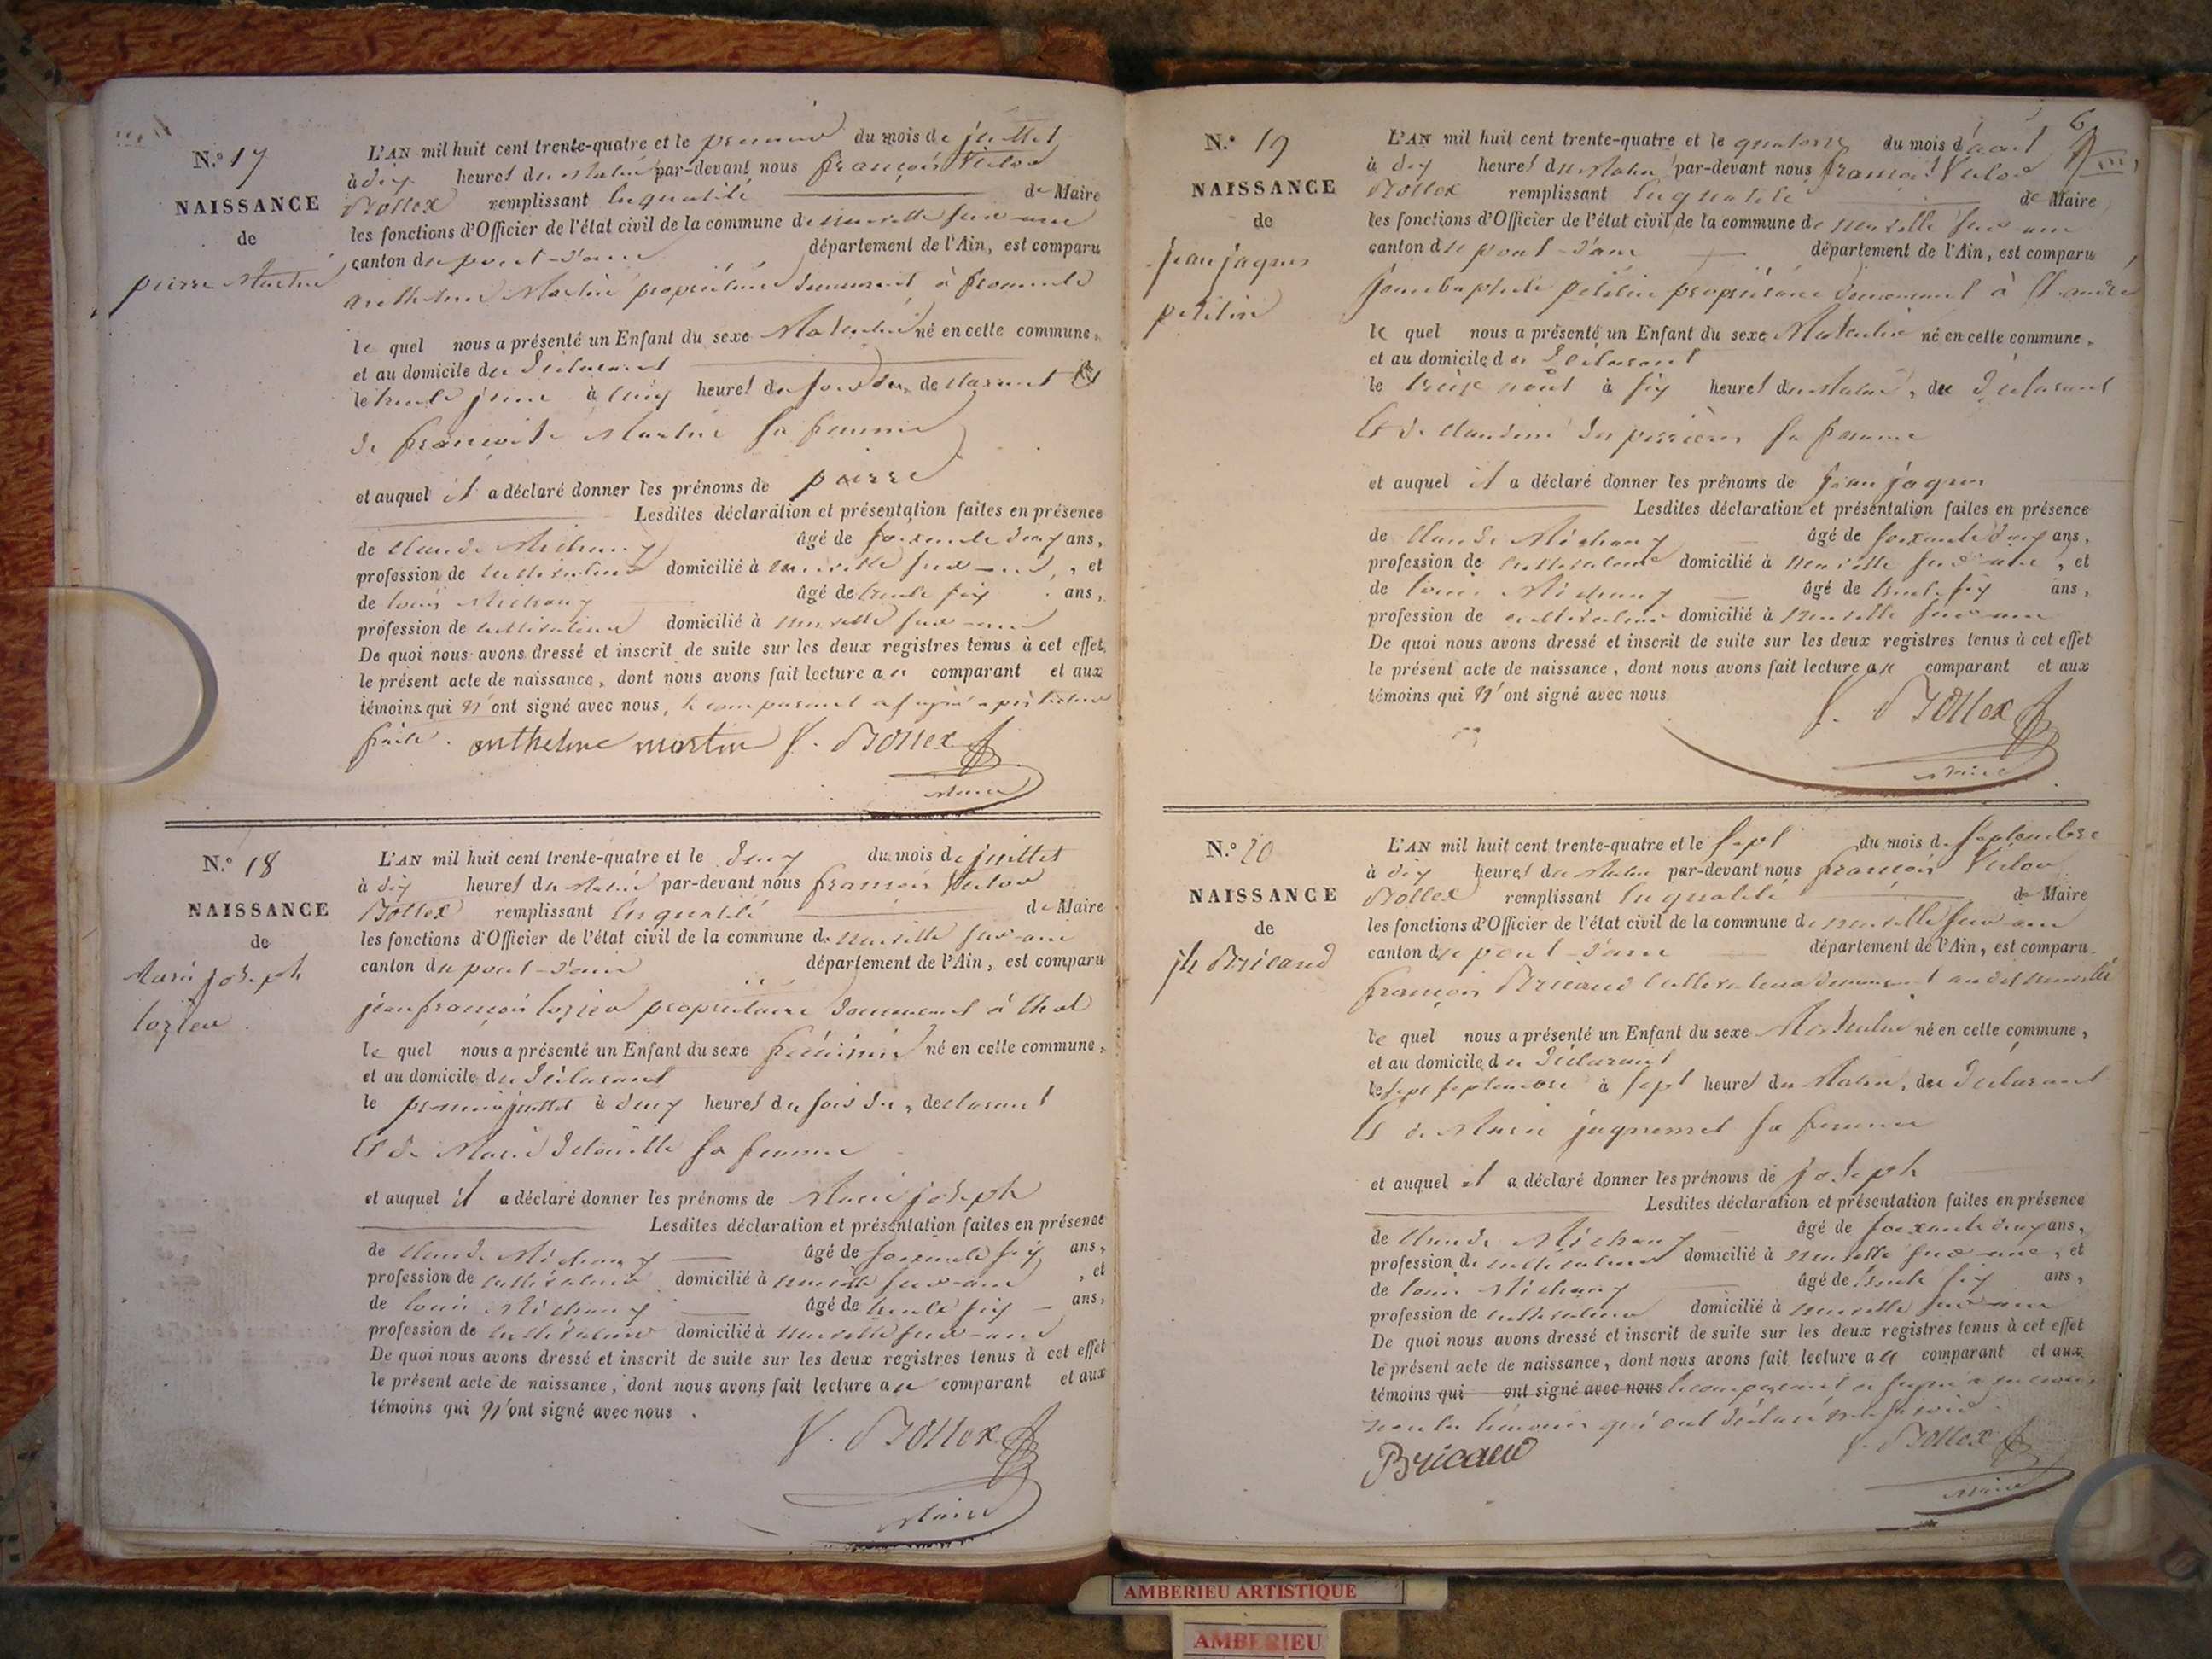 N.° 17
NAISSANCE
de
pierre Martin
L'AN mil huit cent trente-quatre et le premier du mois de juillet
à dix heures du Matin par-devant nous françois Victor
Bollex remplissant en qualité de Maire
les fonctions d'Officier de l'état civil de la commune de neuville sur ain
canton du pont-d'ain département de l'Ain, est comparu
anthelme Martin propriétaire demeurant à
le quel nous a présenté un Enfant du sexe Masculin né en cette commune,
et au domicile du Déclarant
le trente juin à cinq heures du soir du, declarant Et
de françoise Martin sa femme
et auquel il a déclaré donner les prénoms de pierre
Lesdites déclaration et présentation faites en présence
de Claude Michaux âgé de soixante deux ans,
profession de cultivateur domicilié à neuville sur-ain, et
de louis Michaux âgé de trente six ans,
profession de cultivateur domicilié à neuville sur-ain
De quoi nous avons dressé et inscrit de suite sur les deux registres tenus à cet effet,
le présent acte de naissance, dont nous avons fait lecture au comparant et aux
témoins qui n'ont signé avec nous, le comparant a signé
anthelme martin V. Bollex
Maire
N.° 18
NAISSANCE
de
Marie joseph
lozier
L'AN mil huit cent trente-quatre et le deux du mois de juillet
à dix heures du Matin par-devant nous françois Victor
Bollex remplissant en qualité de Maire
les fonctions d'Officier de l'état civil de la commune de neuville sur-ain
canton du pont-d'ain département de l'Ain, est comparu
jean françois lozier propriétaire demeurant à thol
le quel nous a présenté un Enfant du sexe féminin né en cette commune,
et au domicile du Déclarant
le premier juillet à deux heures du soir du, declarant
Et de Marie sa femme
et auquel il a déclaré donner les prénoms de Marie joseph
Lesdites déclaration et présentation faites en présence
de Claude Michaux âgé de soixante ans,
profession de cultivateur domicilié à neuville sur-ain, et
de louis Michaux âgé de trente six ans,
profession de cultivateur domicilié à neuville sur-ain
De quoi nous avons dressé et inscrit de suite sur les deux registres tenus à cet effet
le présent acte de naissance, dont nous avons fait lecture au comparant et aux
témoins qui n'ont signé avec nous.
V. Bollex
Maire
6
N.° 19
NAISSANCE
de
jean jaques
petitin
L'AN mil huit cent trente-quatre et le quatorze du mois d'aout
à dix heures du Matin par-devant nous françois Victor
Bollex remplissant en qualité de Maire
les fonctions d'Officier de l'état civil de la commune de neuville sur ain
canton de pont-d'ain département de l'Ain, est comparu
jean baptiste petitin propriétaire demeurant à St andré
le quel nous a présenté un Enfant du sexe Masculin né en cette commune,
et au domicile du Déclarant
le treize aout à six heures du Matin, du Déclarant
Et de Claudine sa femme
et auquel il a déclaré donner les prénoms de jean jaques
Lesdites déclaration et présentation faites en présence
de Claude Michaux âgé de soixante deux ans,
profession de cultivateur domicilié à neuville sur ain, et
de louis Michaux âgé de trente six ans,
profession de cultivateur domicilié à neuville sur-ain
De quoi nous avons dressé et inscrit de suite sur les deux registres tenus à cet effet
le présent acte de naissance, dont nous avons fait lecture au comparant et aux
témoins qui n'ont signé avec nous
V. Bollex
Maire
N.° 20
NAISSANCE
de
jh Bricaud
L'AN mil huit cent trente-quatre et le sept du mois de septembre
à dix heures du Matin par-devant nous françois Victor
Bollex remplissant en qualité de Maire
les fonctions d'Officier de l'état civil de la commune de neuville sur-ain
canton de pont-d'ain département de l'Ain, est comparu
françois Bricaud cultivateur demeurant audit neuville
le quel nous a présenté un Enfant du sexe Masculin né en cette commune,
et au domicile du Déclarant
le sept septembre à sept heures du Matin, du Déclarant
Et de Marie sa femme
et auquel il a déclaré donner les prénoms de joseph
Lesdites déclaration et présentation faites en présence
de Claude Michaux âgé de soixante deux ans,
profession de cultivateur domicilié à neuville sur-ain, et
de louis Michaux âgé de trente six ans,
profession de cultivateur domicilié à neuville sur-ain
De quoi nous avons dressé et inscrit de suite sur les deux registres tenus à cet effet
le présent acte de naissance, dont nous avons fait lecture au comparant et aux
témoins qui ont signé avec nous le comparant a signé
non les témoins qui ont déclaré ne le savoir
Bricaud V. Bollex
Maire
AMBERIEU ARTISTIQUE
AMBERIEU